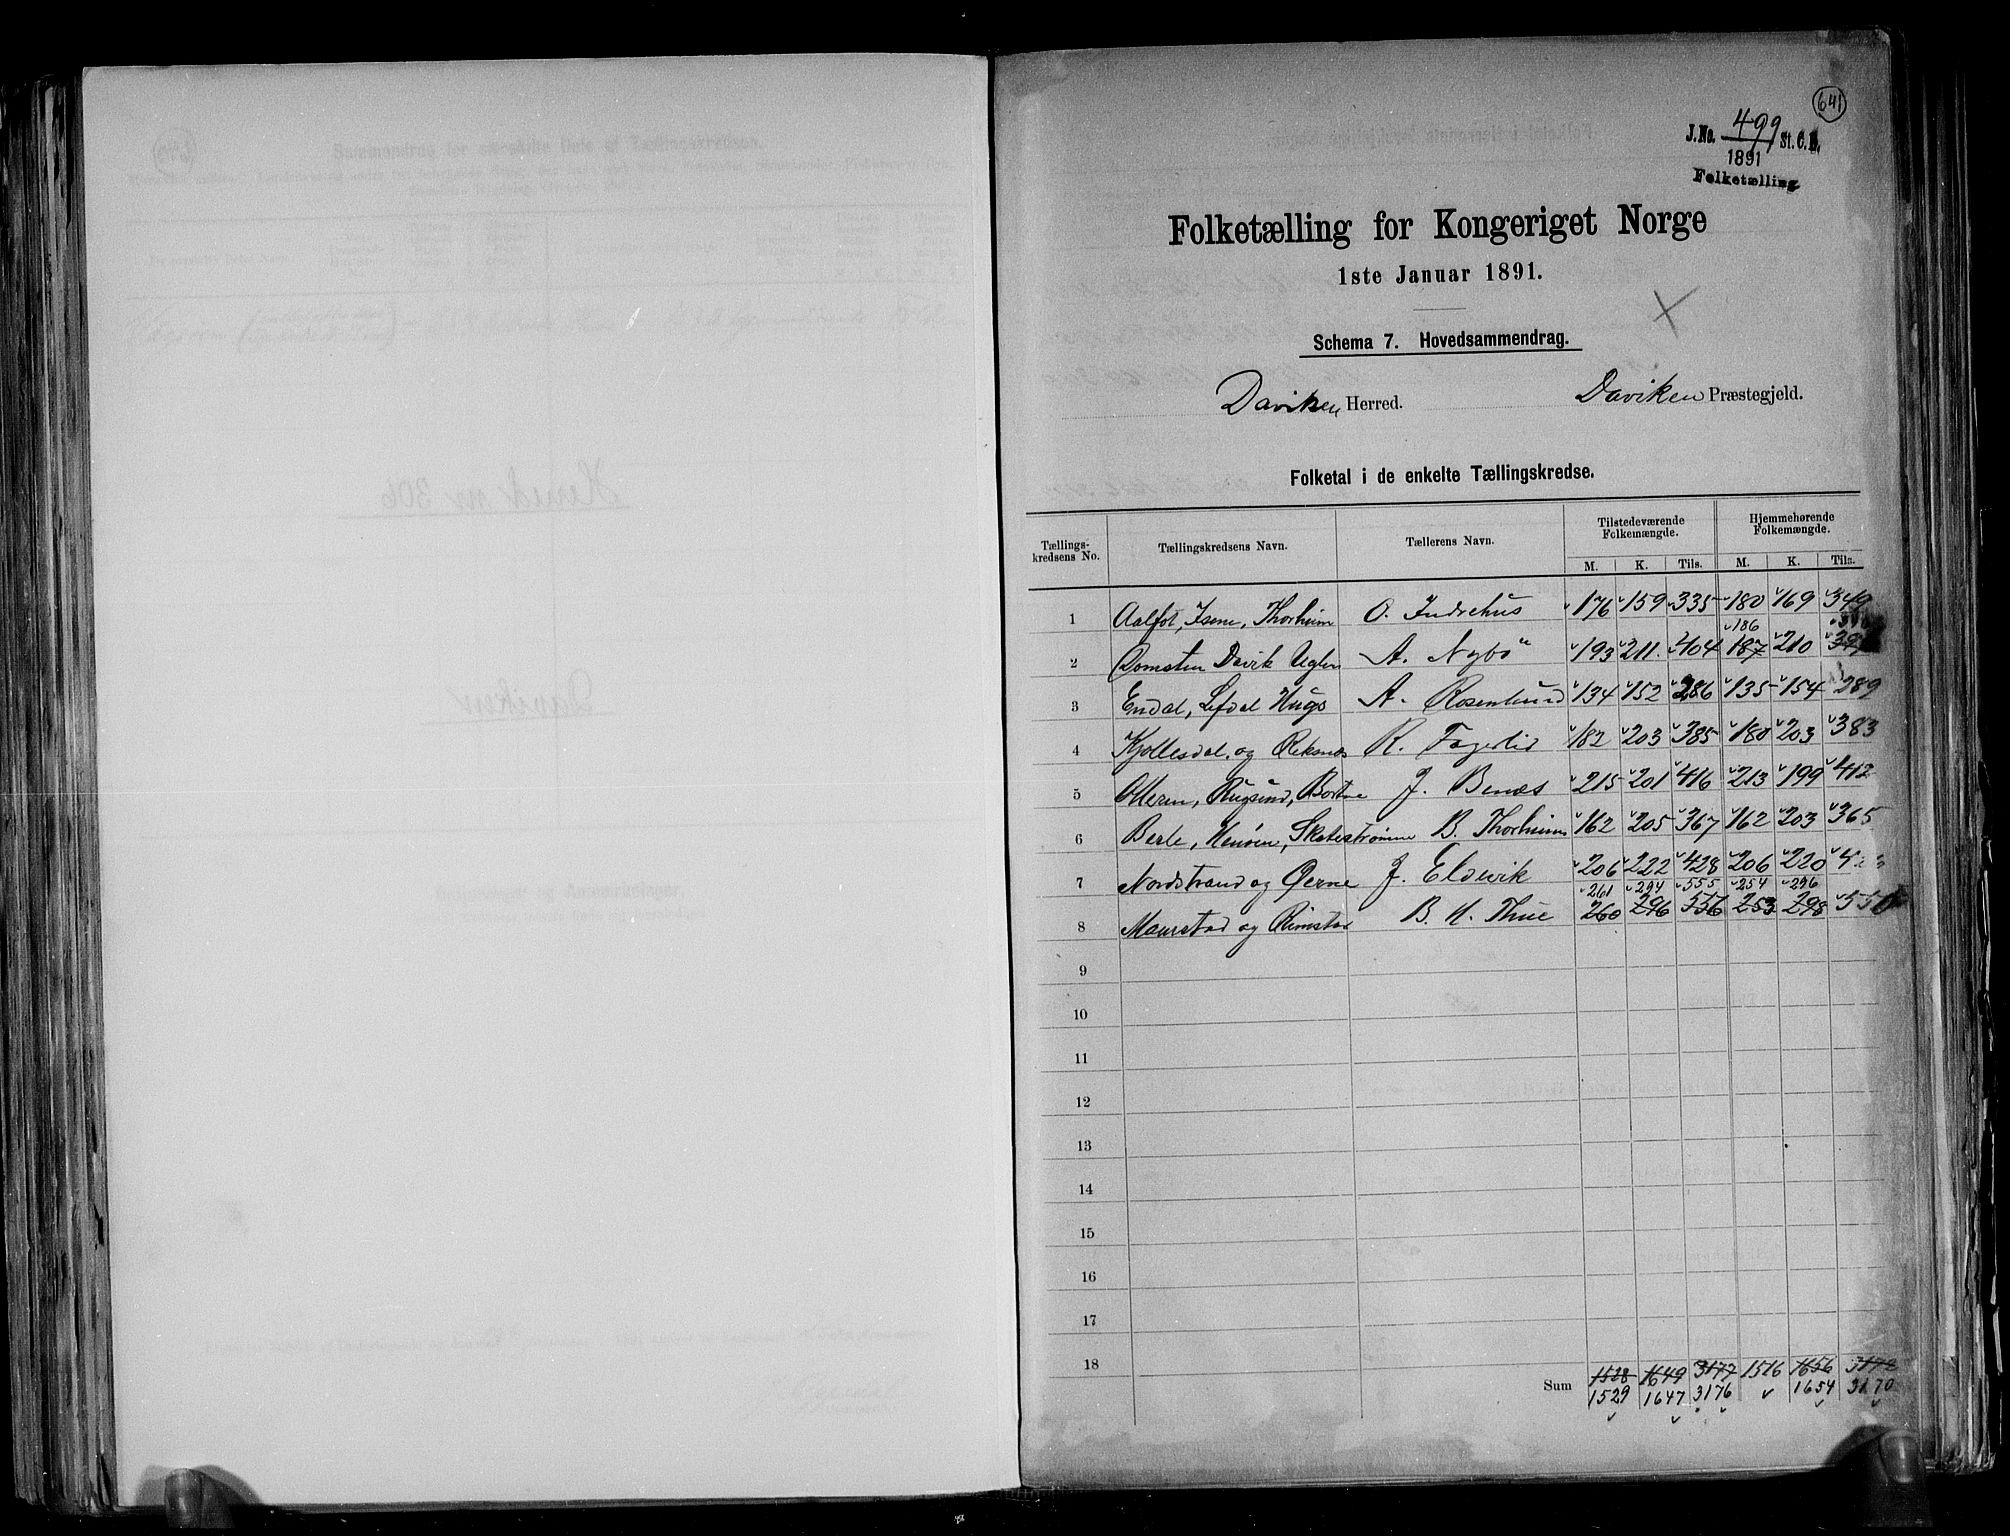 641
J. No. 499 St. C. B.
1891
Folketælling
Folketælling for Kongeriget Norge
1ste Januar 1891.
Schema 7. Hovedsammendrag.
Daviken Herred. Daviken Præstegjeld.
Folketal i de enkelte Tællingskredse.
Tællings-kredsens No. Tællingskredsens Navn. Tællerens Navn. Tilstedeværende Folkemængde. Hjemmehørende Folkemængde.
M. K. Tils. M. K. Tils.
1 Aalfot, Isene, Thorheim O. Indrehus 176 159 335 180 169 349
186
2 Domsten Davik Uglen A. Nybö 193 211 404 187 210 397
3 Endal, Lefdal Hugs A. Rosenlund 134 152 286 135 154 289
4 Kjøllesdal og Reksnæs R. Fagerlid 182 203 385 180 203 383
5 Otteren, Rugsund, Bortne J. Benæs 215 201 416 213 199 412
6 Berle, Henøen, Skatestrømme B. Thorheim 162 205 367 162 203 365
7 Nordstrand og Øerne J. Eldevik 206 222 428 206 220
261 294 555 254 296
8 Maurstad og Rimstad B. H. Thue 260 296 556 253 298 550
9
10
11
12
13
14
15
16
17
18
1528 1649 3177 1516 1656 3172
Sum 1529 1647 3176 1654 3170
Herred nr 306
Daviken